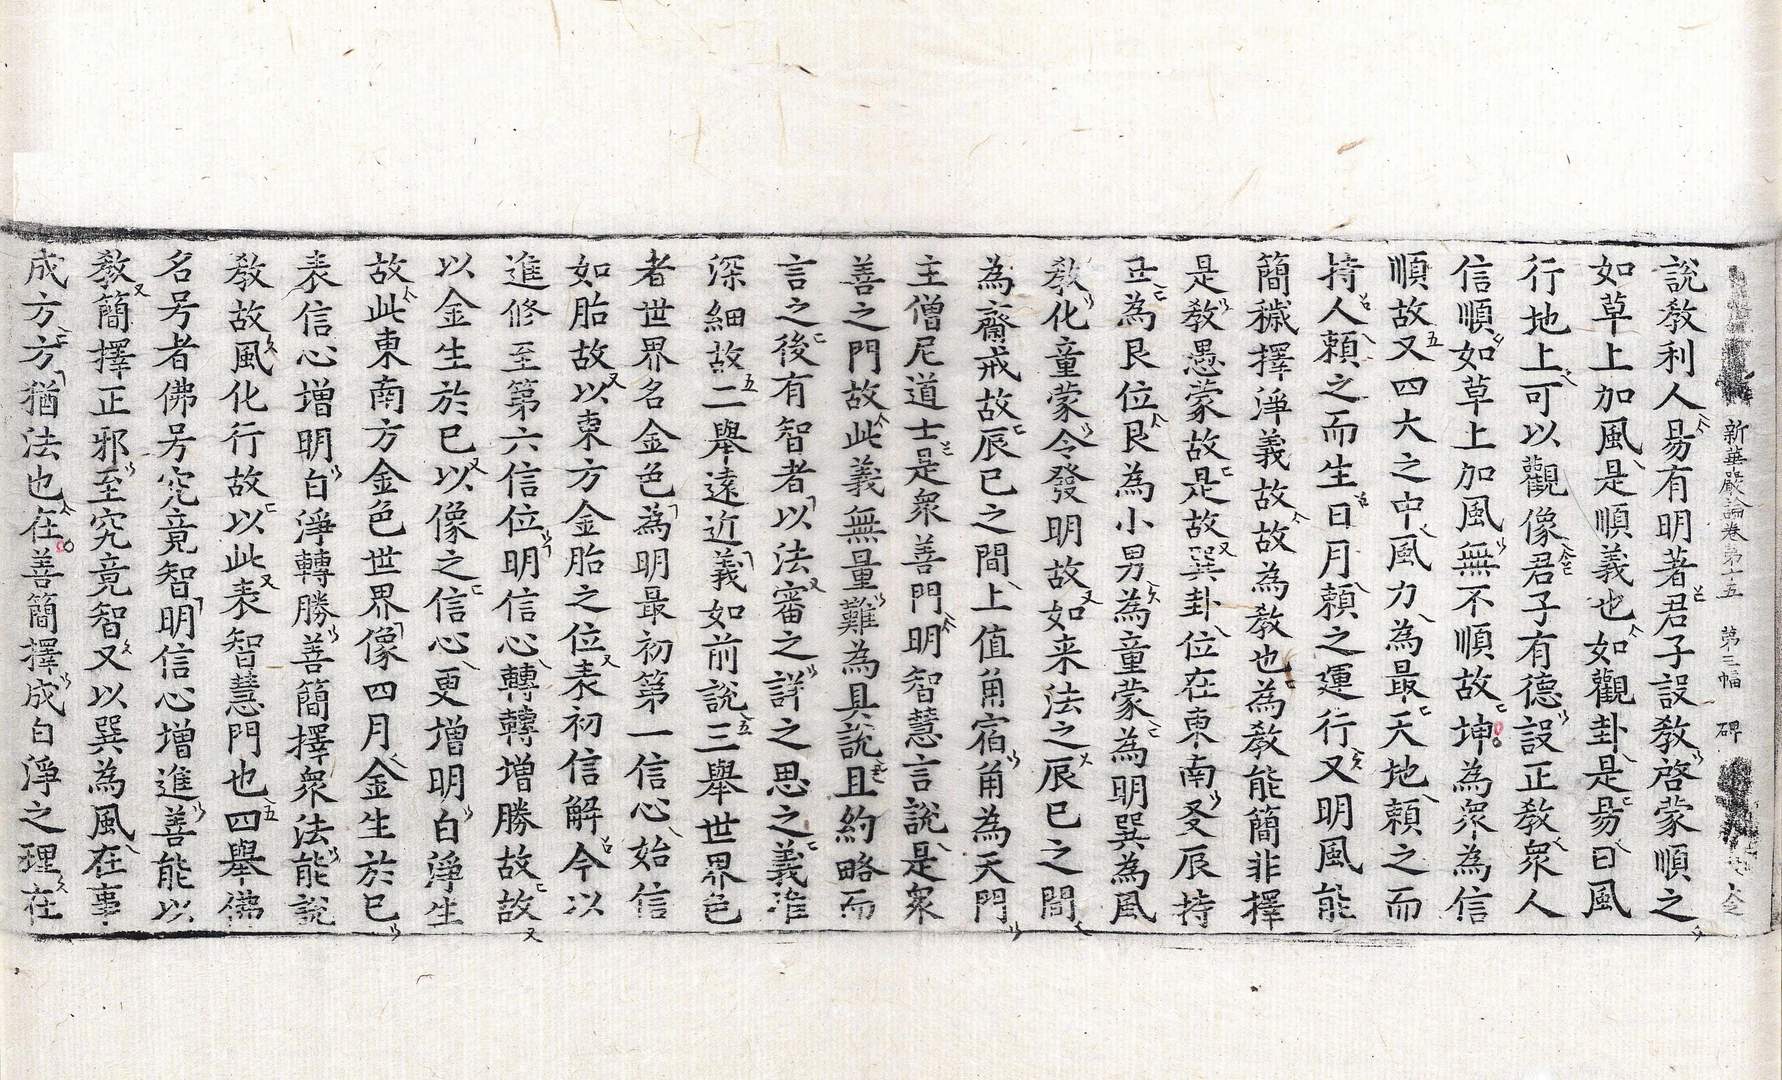 新華嚴論卷第十五 第三幅 碑
說教利人易有明著君子設教啓蒙順之
如草上加風是順義也如觀卦是易曰風
行地上可以觀像君子有德設正教衆人
信順如草上加風無不順故坤為衆為信
順故又四大之中風力為最天地賴之而
持人賴之而生日月賴之運行又明風能
簡穢擇淨義故故為教也為教能簡非擇
是教愚蒙故是故巽卦位在東南夌辰持
正為艮位艮為小男為童蒙為明巽為風
教化童蒙令發明故如来法之辰巳之間
為齋戒故辰巳之間上值角宿角為天門
主僧尼道士是衆善門明智慧言說是衆
善之門故此義無量難為具說且約略而
言之後有智者以法審之詳之思之義准
深細故二舉遠近義如前說三舉世界色
者世界名金色為明最初第一信心始信
如胎故以東方金胎之位表初信解今以
進修至第六信位明信心轉轉增勝故故
以金生於巳以像之信心更增明白淨生
故此東南方金色世界像四月金生於巳
表信心增明白淨轉勝善簡擇衆法能說
教故風化行故以此表智慧門也四舉佛
名号者佛号究竟智明信心增進善能以
教簡擇正邪至究竟智又以巽為風在事
成方方猶法也在善簡擇成白淨之理在